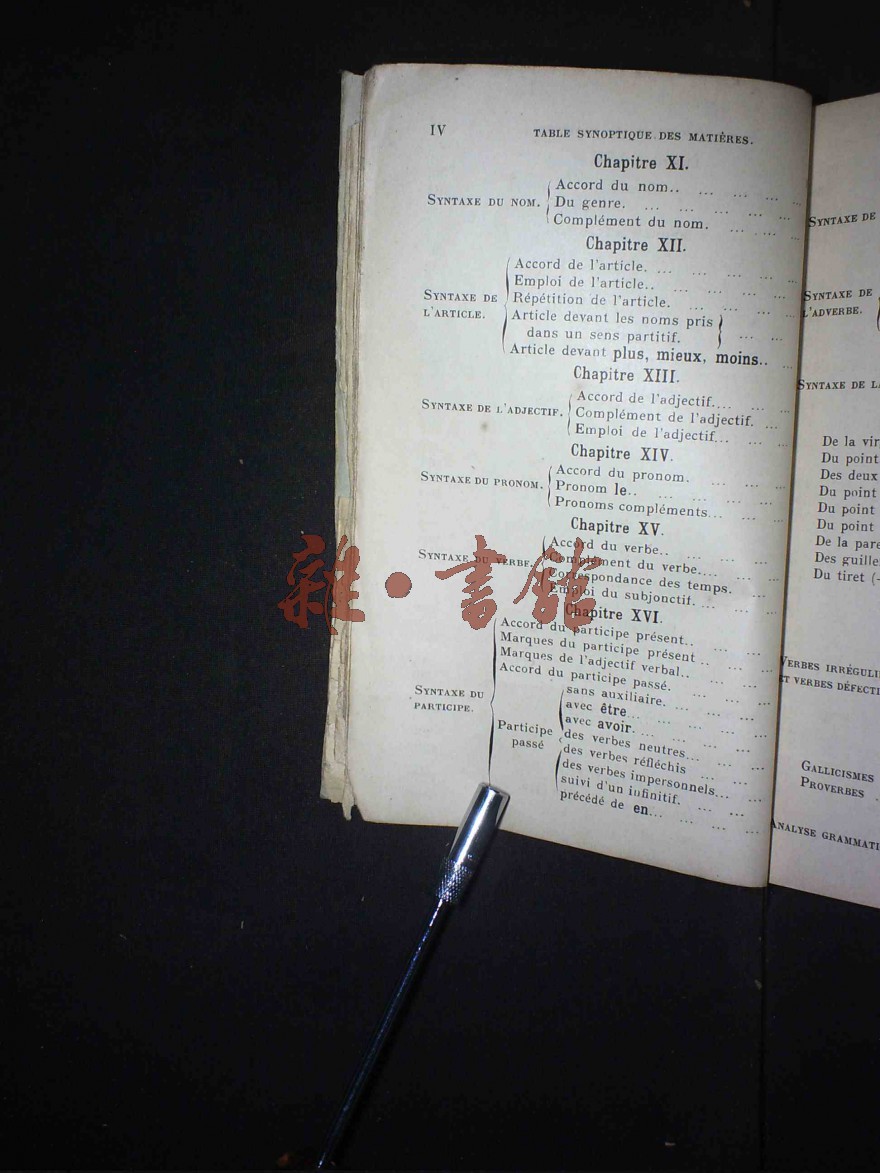 IV TABLE SYNOPTIQUE DES MATIÈRES.
Chapitre XI.
SYNTAXE DU NOM.
Accord du nom.. ... ... ... ...
Du genre. ... ... ... ... ...
Complément du nom. ... ... ... ...
Chapitre XII.
SYNTAXE DE
L'ARTICLE.
Accord de l'article. ... ... ... ... ...
Emploi de l'article.. ... ... ... ...
Répétition de l'article. ... ... ... ...
Article devant les noms pris
dans un sens partitif. ... ...
Article devant plus, mieux, moins.. ...
Chapitre XIII.
SYNTAXE DE L'ADJECTIF.
Accord de l'adjectif.... ... ...
Complément de l'adjectif. ...
Emploi de l'adjectif... ... ...
Chapitre XIV.
SYNTAXE DU PRONOM.
Accord du pronom. ... ... ...
Pronom le.. ... ... ... ...
Pronoms compléments... ... ...
Chapitre XV.
SYNTAXE DU VERBE.
Accord du verbe.. ... ... ...
Complément du verbe.... ... ...
Correspondance des temps. ...
Emploi du subjonctif. ... ... ...
Chapitre XVI.
SYNTAXE DU
PARTICIPE.
Accord du participe présent.. ... ...
Marques du participe présent .. ... ...
Marques de l'adjectif verbal.. ... ...
Accord du participe passé. ... ... ...
Participe
passé
sans auxiliaire. ... ... ...
avec être... ... ... ...
avec avoir. ... ... ... ...
des verbes neutres... ... ...
des verbes réfléchis ... ...
des verbes impersonnels... ...
suivi d'un infinitif. ... ...
précédé de en... ... ... ...
SYNTAXE DE
SYNTAXE DE
L'ADVERBE.
SYNTAXE DE LA
De la vir
Du point
Des deux
Du point
Du point
Du point
De la pare
Des guille
Du tiret (-
VERBES IRRÉGULI
ET VERBES DÉFECTI
GALLICISMES
PROVERBES
ANALYSE GRAMMATI
雜·書館